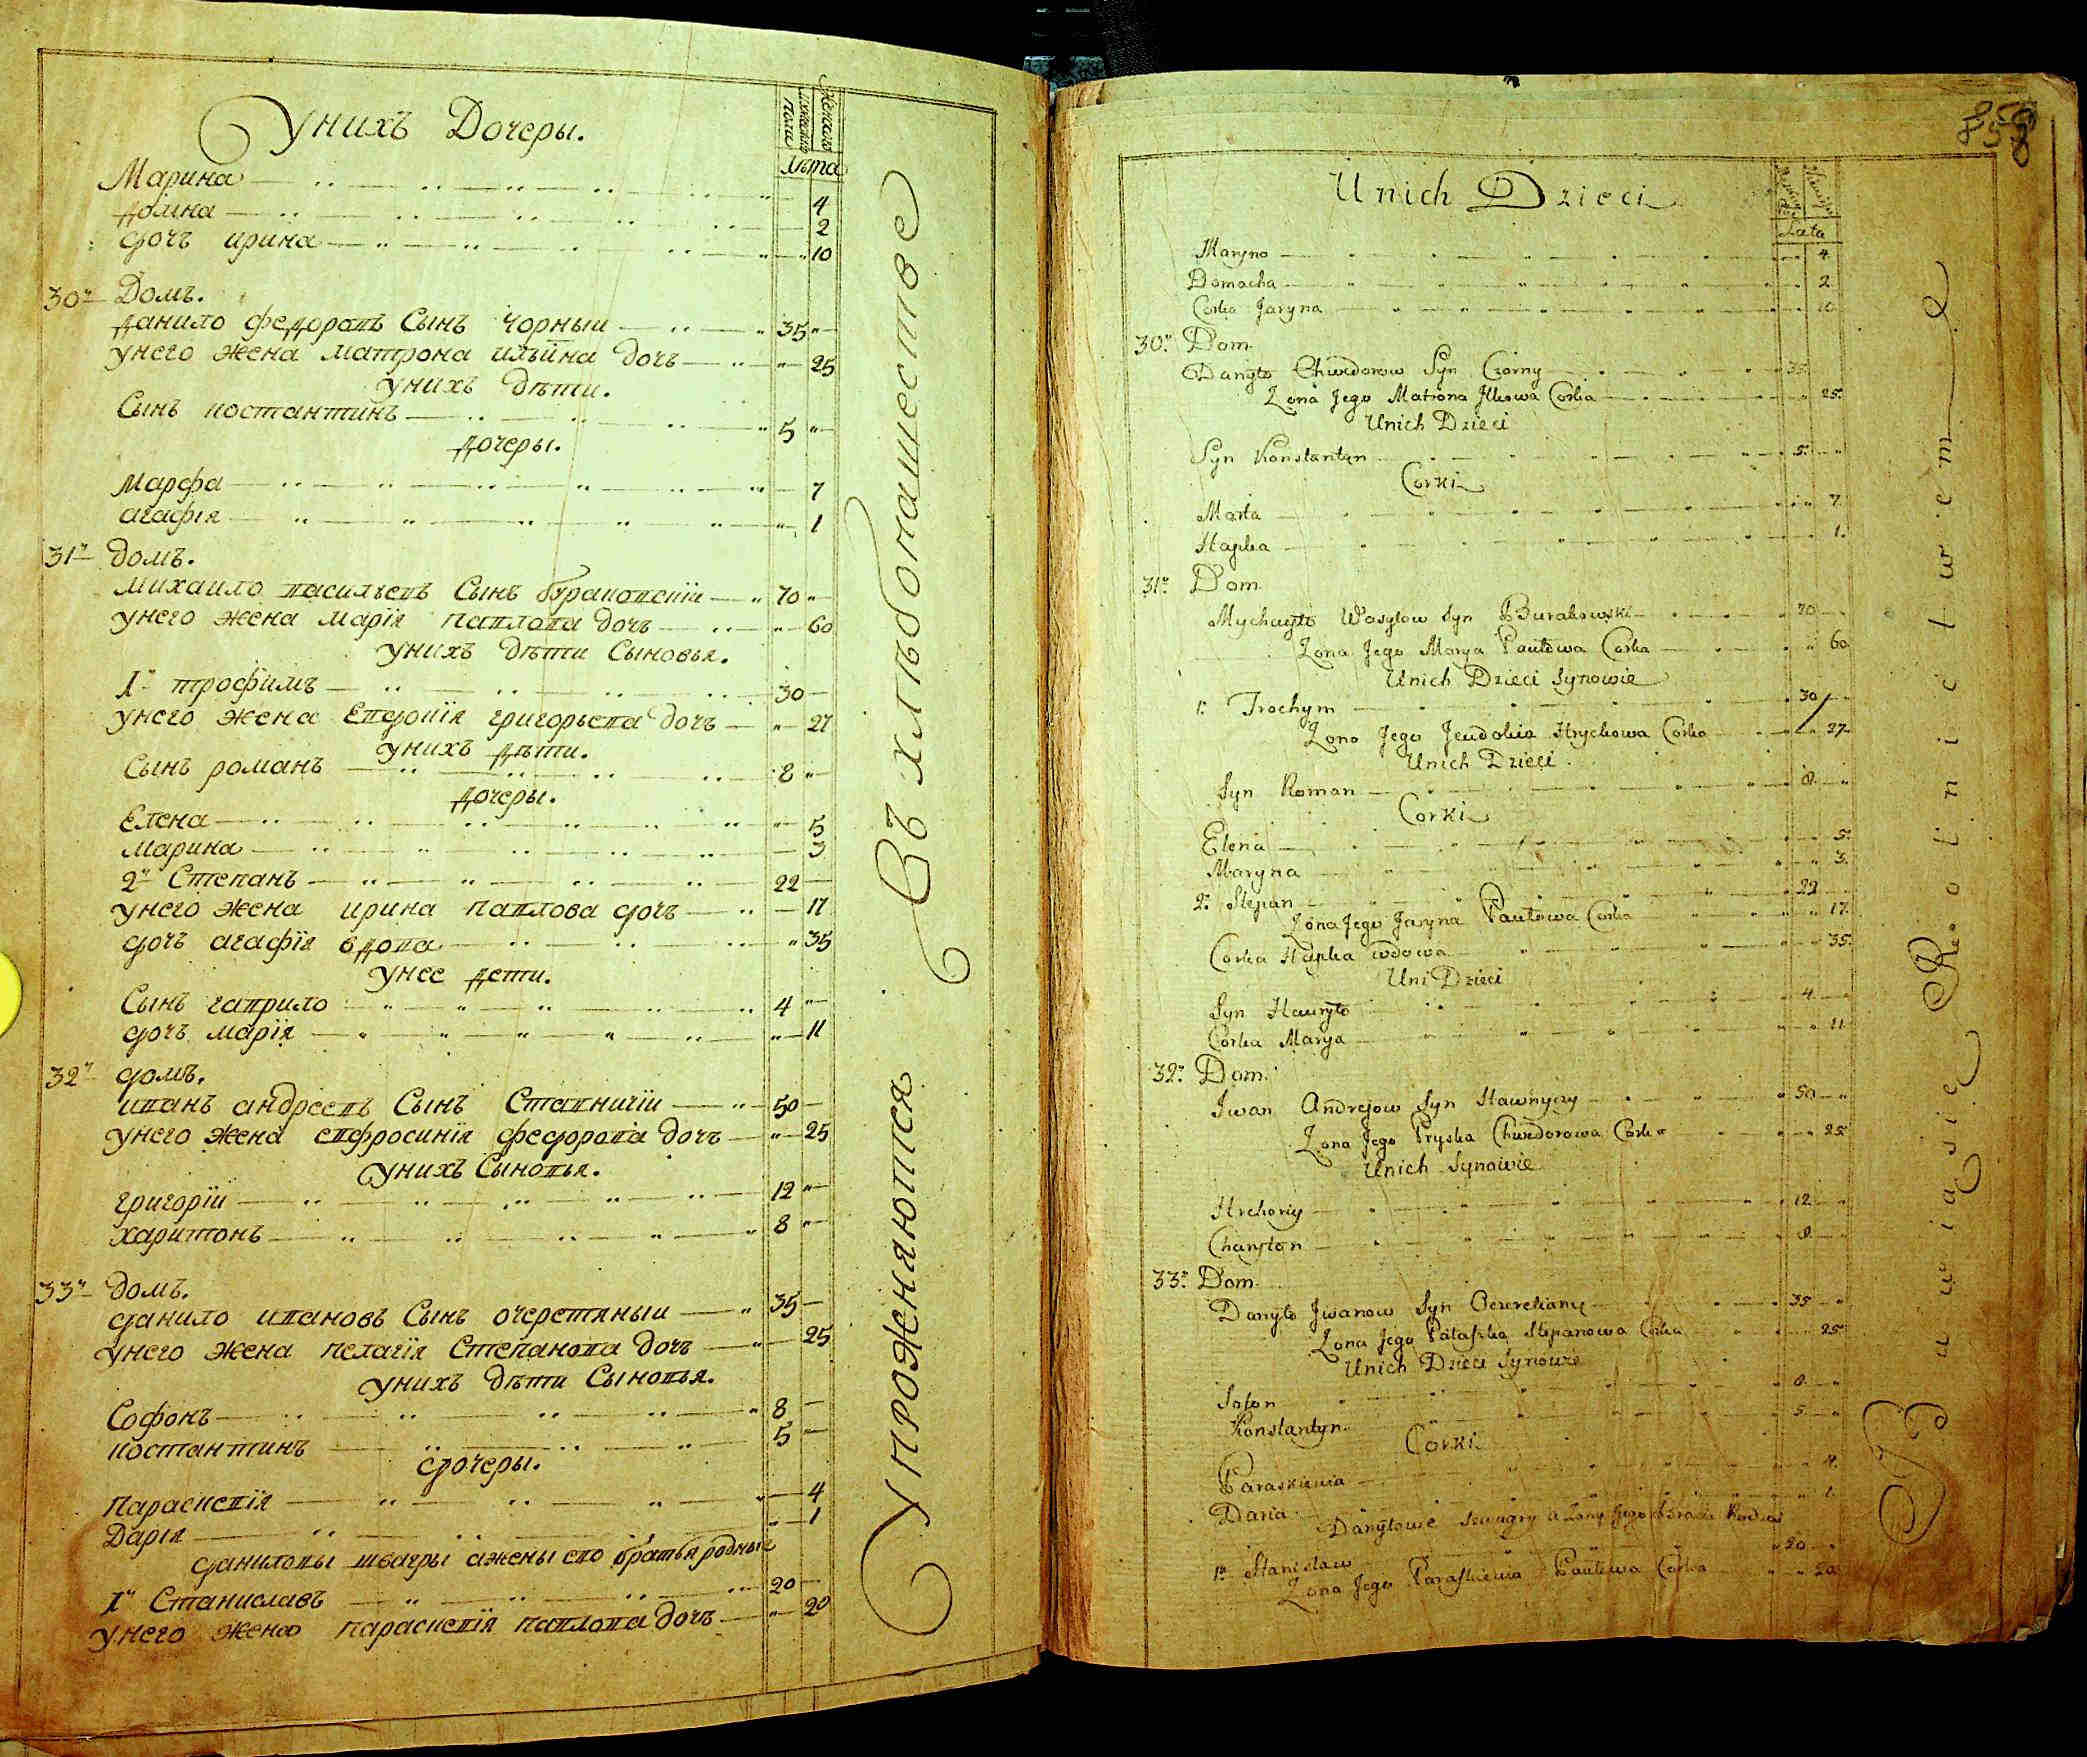 Унихъ Дочеры.
мужеска пола
женска
лѣта
Марина 4
Домна 2
дочъ ирина 10
30й Домъ.
данило федоровъ Сынъ Чорныи 35
унего жена матрона ильина дочъ 25
унихъ дѣти.
Сынъ костантинъ 5
дочеры.
Марфа 7
агафія 1
31й домъ.
михаило васильевъ Сынъ бураковскіи 70
унего жена марія павлова дочъ 60
унихъ дѣти Сыновья.
1й трофимъ 30
унего жена Евдокія григорьева дочъ 27
унихъ дѣти.
Сынъ романъ 8
дочеры.
Елена 5
марина 3
2й Степанъ 22
унего жена ирина павлова дочъ 17
дочъ агафія вдова 35
унее дети.
Сынъ гаврило 4
дочъ марія 11
32й домъ.
иванъ андреевъ Сынъ Ставничіи 50
унего жена евфросинія федорова дочъ 25
унихъ Сыновья.
григоріи 12
харитонъ 8
33й домъ.
данило ивановъ Сынъ очеретяныи 35
унего жена пелагія Степанова дочъ 25
унихъ дѣти Сыновья.
Софонъ 8
костантинъ 5
дочеры.
параскевія 4
Дарія 1
даниловы швагры ажены его братья родныи
1й Станиславъ 20
унего жена параскевія павлова дочъ 20
Упрожняются Въ хлѣбопашестве
858
Unich Dzieci
Lata
Maryna 4
Domacha 2
Corka Jaryna 10
30. Dom
Danyło Chwedorow Syn Czorny 35
Zona Jego Matrona Jlkowa Corka 25
Unich Dzieci
Syn Konstantyn 5
Corki
Marta 7
Hapka 1
31. Dom
Mychayło Wasylow Syn Burakowski 70
Zona Jego Marya Pawłowa Corka 60
Unich Dzieci Synowie
1. Trochym 30
Zona Jego Jewdokia Hryckowa Corka 27
Unich Dzieci
Syn Roman 8
Corki
Elena 5
Maryna 3
2. Stepan 22
Zona Jego Jaryna Pawłowa Corka 17
Corka Hapka wdowa 35
Uni Dzieci
Syn Hawryło 4
Corka Marya 11
32. Dom
Jwan Andrejow Syn Stawniczy 50
Zona Jego Pryska Chwedorowa Corka 25
Unich Synowie
Hrehory 12
Charyton 8
33. Dom
Danyło Jwanow Syn Oczeretiany 35
Zona Jego Pałaszka Stepanowa Corka 25
Unich Dzieci Synowie
Sofon 8
Konstantyn 5
Corki
Paraskiewia 4
Daria 1
Danyłowe szwagry a Zony Jego Bracia Rodni
1. Stanisław 20
Zona Jego Paraskiewia Pawłowa Corka 20
Bawiąsie Rolnictwem